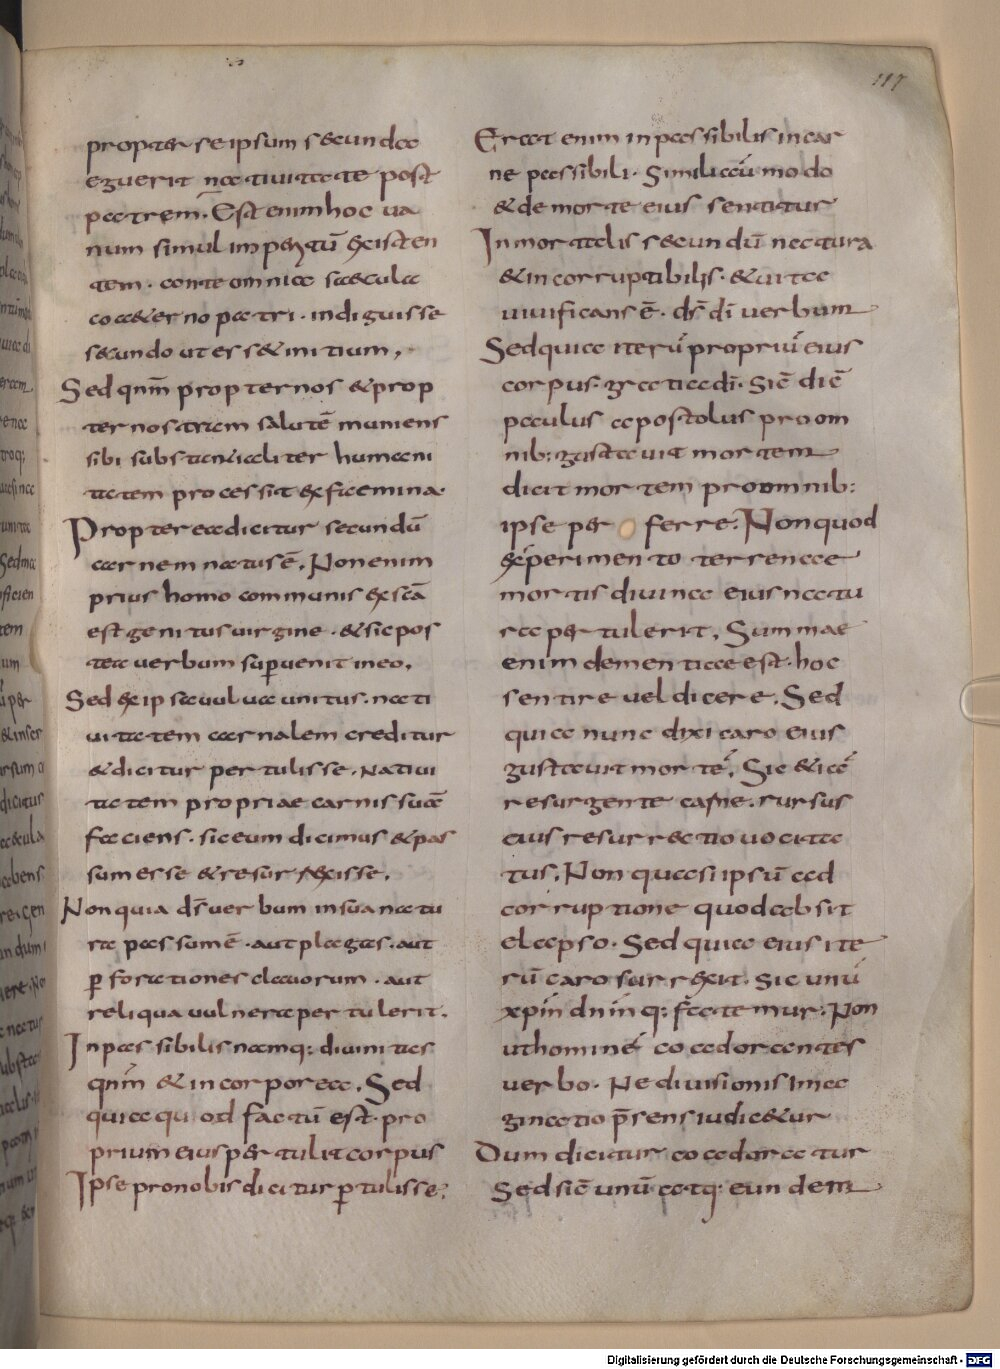 117
propter se ipsum secunda
eguerit natiuitate post
patrem. Est enim hoc ua
num simul imperitū existen
tem. cante omnia saecula
coaeterno patri. indiguisse
secundo ut esset initium,
Sed qnm̄ propter nos & prop
ter nostram salutē muniens
sibi substantialiter humani
tatem processit ex femina.
Propter ea dicitur secundū
carnem natus ē. Non enim
prius homo communis ex scā
est genitus uirgine. & sic pos
tea uerbum superuenit in eo.
Sed ex ipsa uulua unitus. nati
uitatem carnalem creditur
& dicitur pertulisse. Natiui
tatem propriae carnis suae
faciens. sic eum dicimus & pas
sum esse & resurrexisse.
Non quia ds̄ uerbum in sua natu
ra passum ē. aut plagas. aut
ꝑforationes clauorum. aut
reliqua uulnera pertulerit.
Inpassibilis namq: diuinitas
qnm̄ & incorporea. Sed
quia quod factū est. pro
prium eius pertulit corpus
Ipse pro nobis dicitur ꝑtulisse.
Erat enim inpassibilis in car
ne passibili. Similiaū modo
& de morte eius sentitur
Inmortalis secundū natura
& incorruptibilis. & uita
uiuificans ē. ds̄ dī uerbum
Sed quia iterū propriū eius
corpus. gratia dī. sic̄ dic̄
paulus apostolus pro om
nib: gustauit mortem
dicit mortem pro omnib:
ipse perferre. Non quod
experimento terrenae
mortis diuina eius natu
ra pertulerit. Summae
enim dementiae est. hoc
sentire uel dicere. Sed
quia nunc dixi caro eius
gustauit mortē. Sic & iā
resurgente carne. rursus
eius resurrectio uocita
tus. Non quasi ipsū ad
corruptione quod absit
elapso. Sed quia eius ite
rū caro surrexit. Sic unū
xp̄m dn̄m q: fatemur. Non
ut hominē coadorantes
uerbo. Ne diuisionis ima
ginatio p̄sens iudicetur
Dum dicitur coadoratur
Sed sic̄ unū atq: eundem
Digitalisierung gefördert durch die Deutsche Forschungsgemeinschaft - DFG